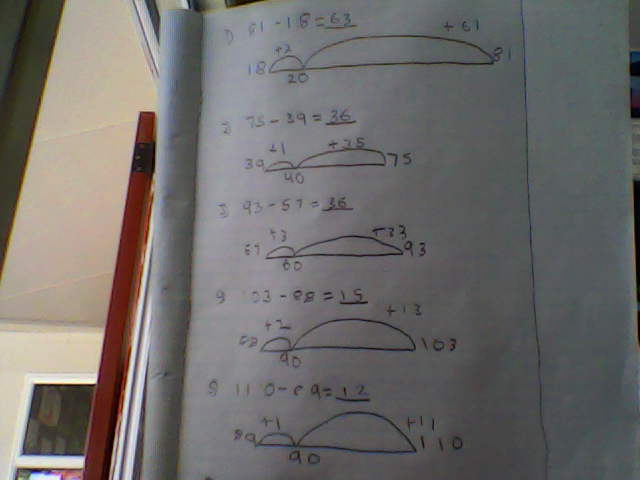 1) 81 - 18 = 63
+2 +61
18 81
20
2) 75 - 39 = 36
+1 +35
39 75
40
3) 93 - 57 = 36
+3 +33
57 93
60
4) 103 - 88 = 15
+2 +13
88 103
90
5) 110 - 89 = 12
+1 +11
89 110
90